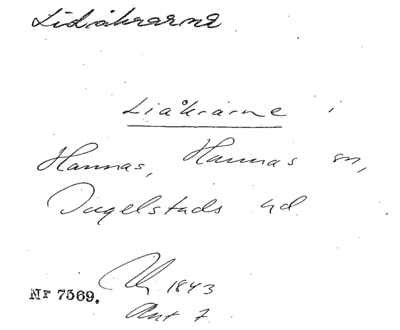 Lidåkrarne
Liåkrarne i
Hannas, Hannas sn,
Ingelstads hd.
1843
Nr 7569.
Akt 7